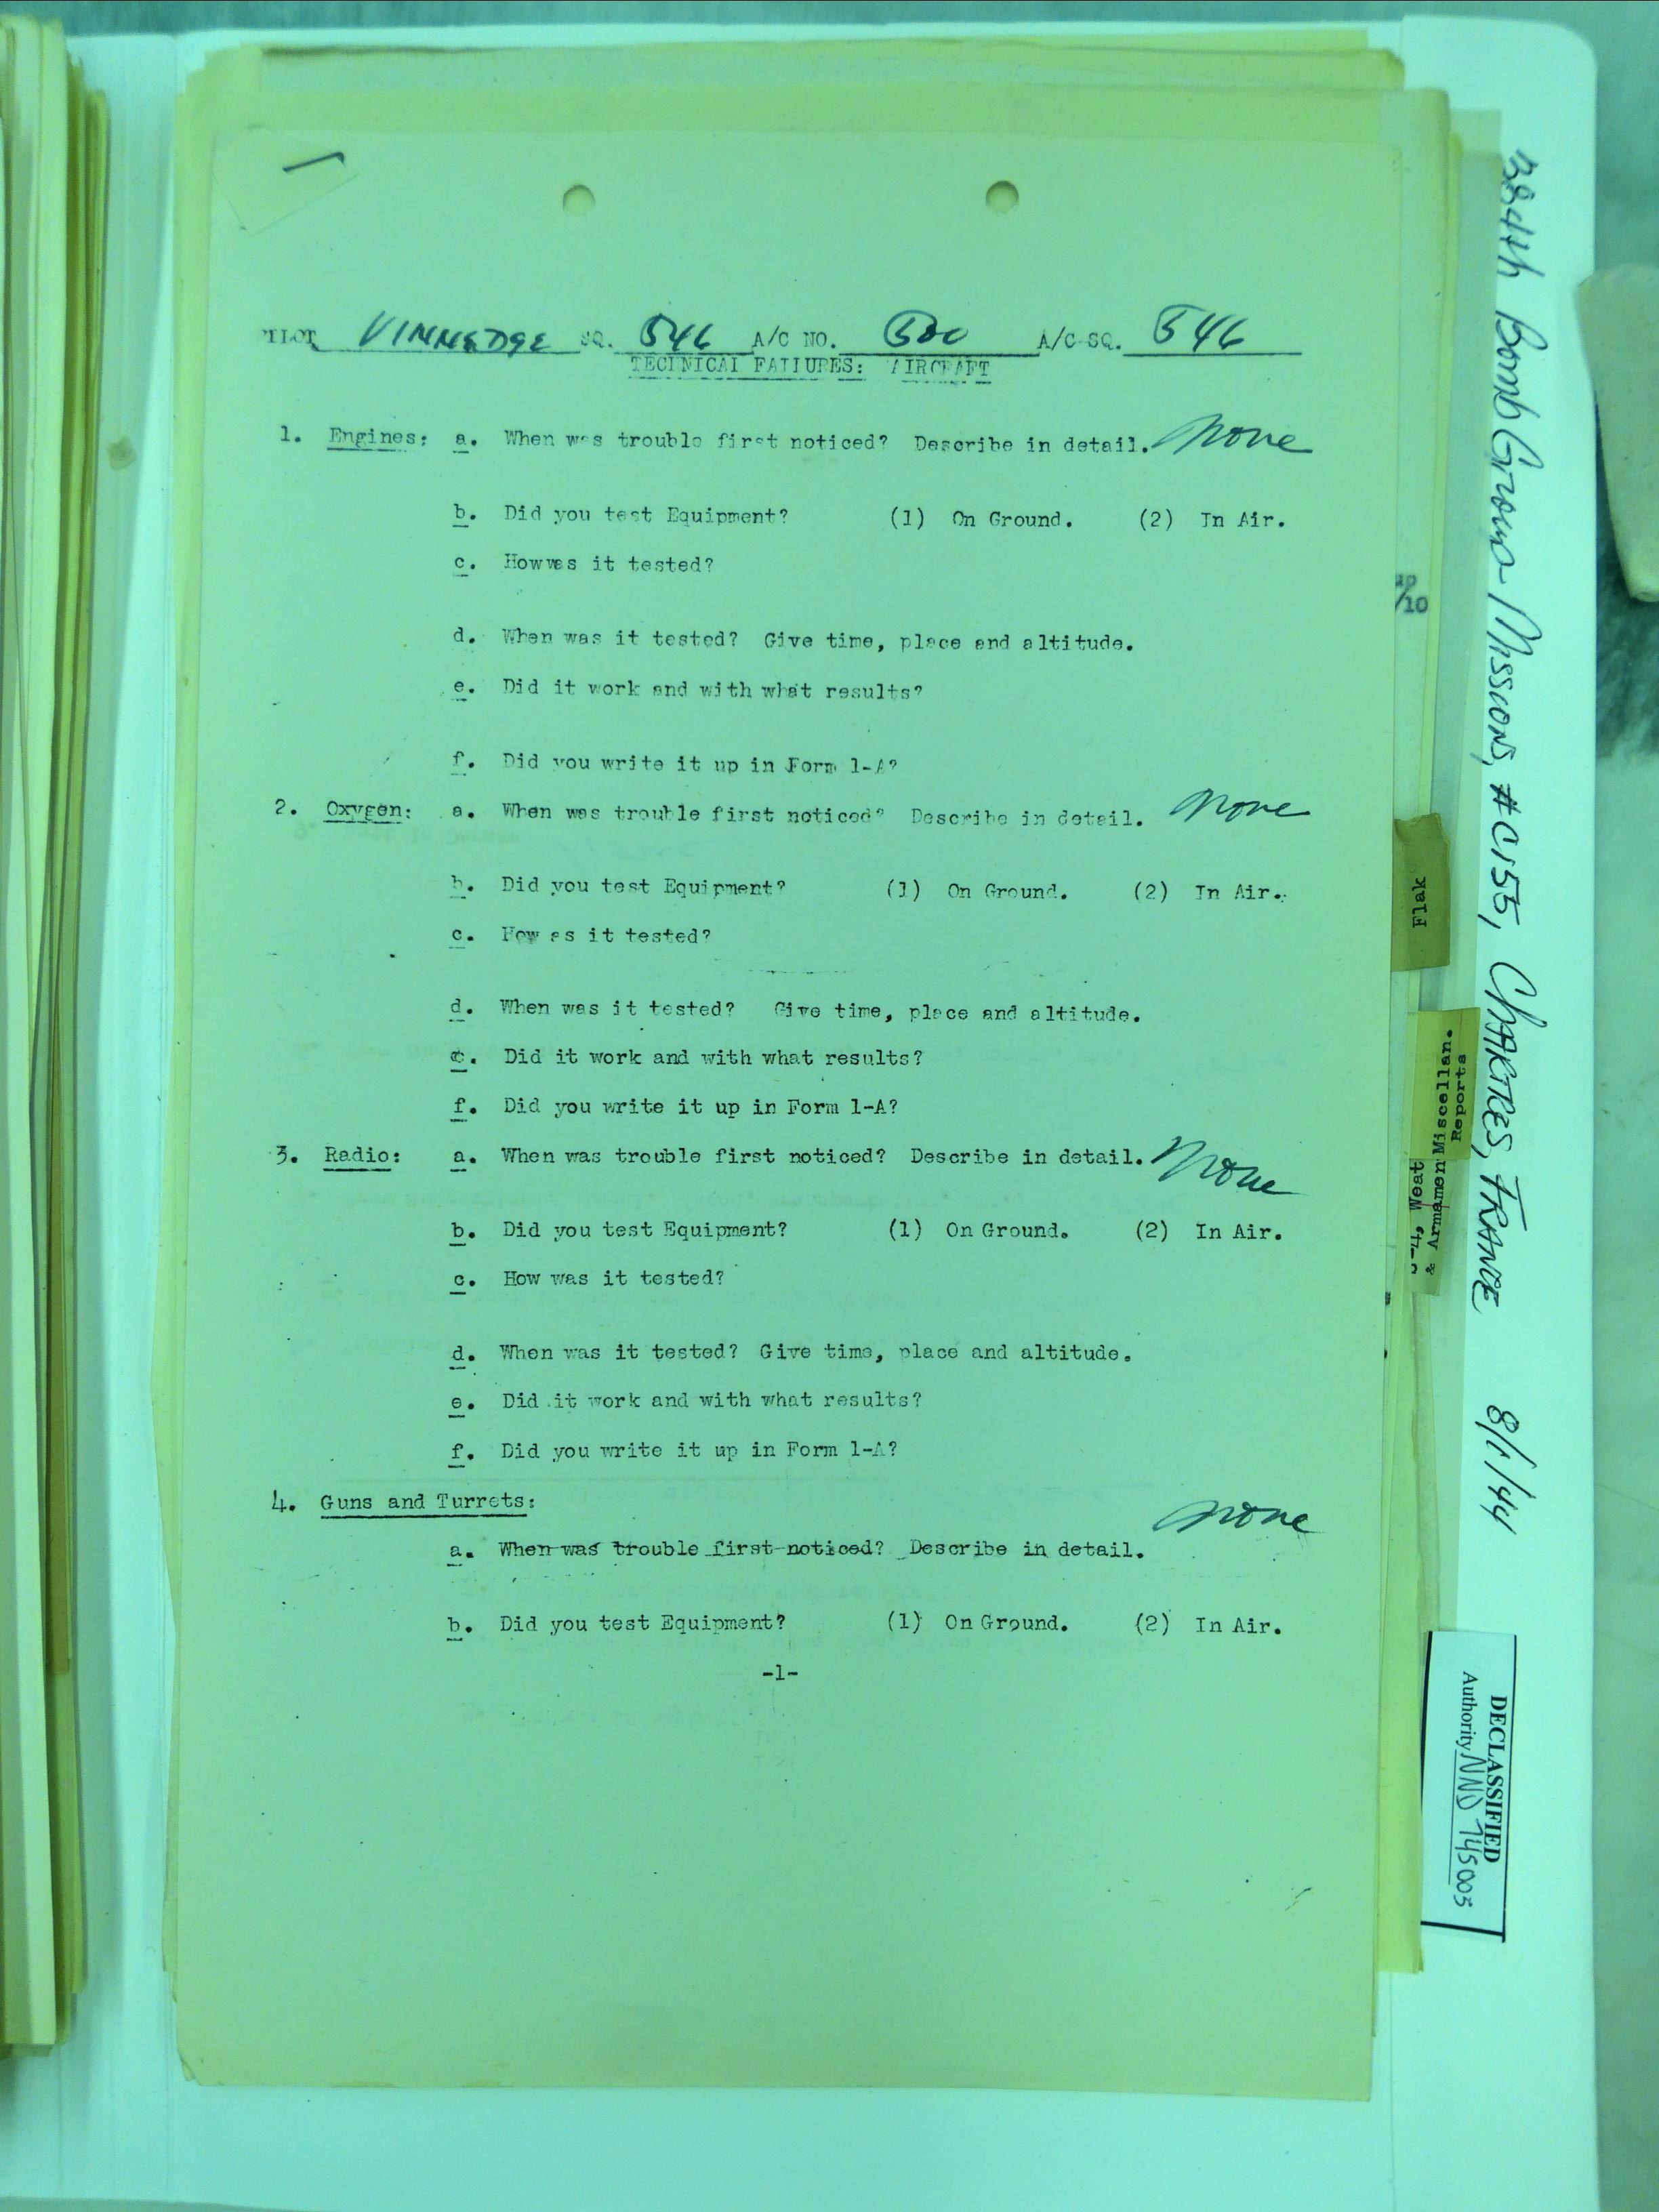 PILOT VINNEDGE SQ. 546 A/C NO. 500 A/C SQ. 546
TECHNICAL FAILURES: AIRCRAFT
1. Engines: a. When was trouble first noticed? Describe in detail. None
b. Did you test Equipment? (1) On Ground. (2) In Air.
c. How was it tested?
d. When was it tested? Give time, place and altitude.
e. Did it work and with what results?
f. Did you write it up in Form 1-A?
2. Oxygen: a. When was trouble first noticed? Describe in detail. None
b. Did you test Equipment? (1) On Ground. (2) In Air.
c. How as it tested?
d. When was it tested? Give time, place and altitude.
e. Did it work and with what results?
f. Did you write it up in Form 1-A?
3. Radio: a. When was trouble first noticed? Describe in detail. None
b. Did you test Equipment? (1) On Ground. (2) In Air.
c. How was it tested?
d. When was it tested? Give time, place and altitude.
e. Did it work and with what results?
f. Did you write it up in Form 1-A?
4. Guns and Turrets: None
a. When was trouble first noticed? Describe in detail.
b. Did you test Equipment? (1) On Ground. (2) In Air.
-1-
/10
Flak
Miscellan.
Reports
-4, Weat
& Armamen
384th Bomb Group Missions, #C155, CHARTRES, FRANCE 8/1/44
DECLASSIFIED
Authority NND 745005